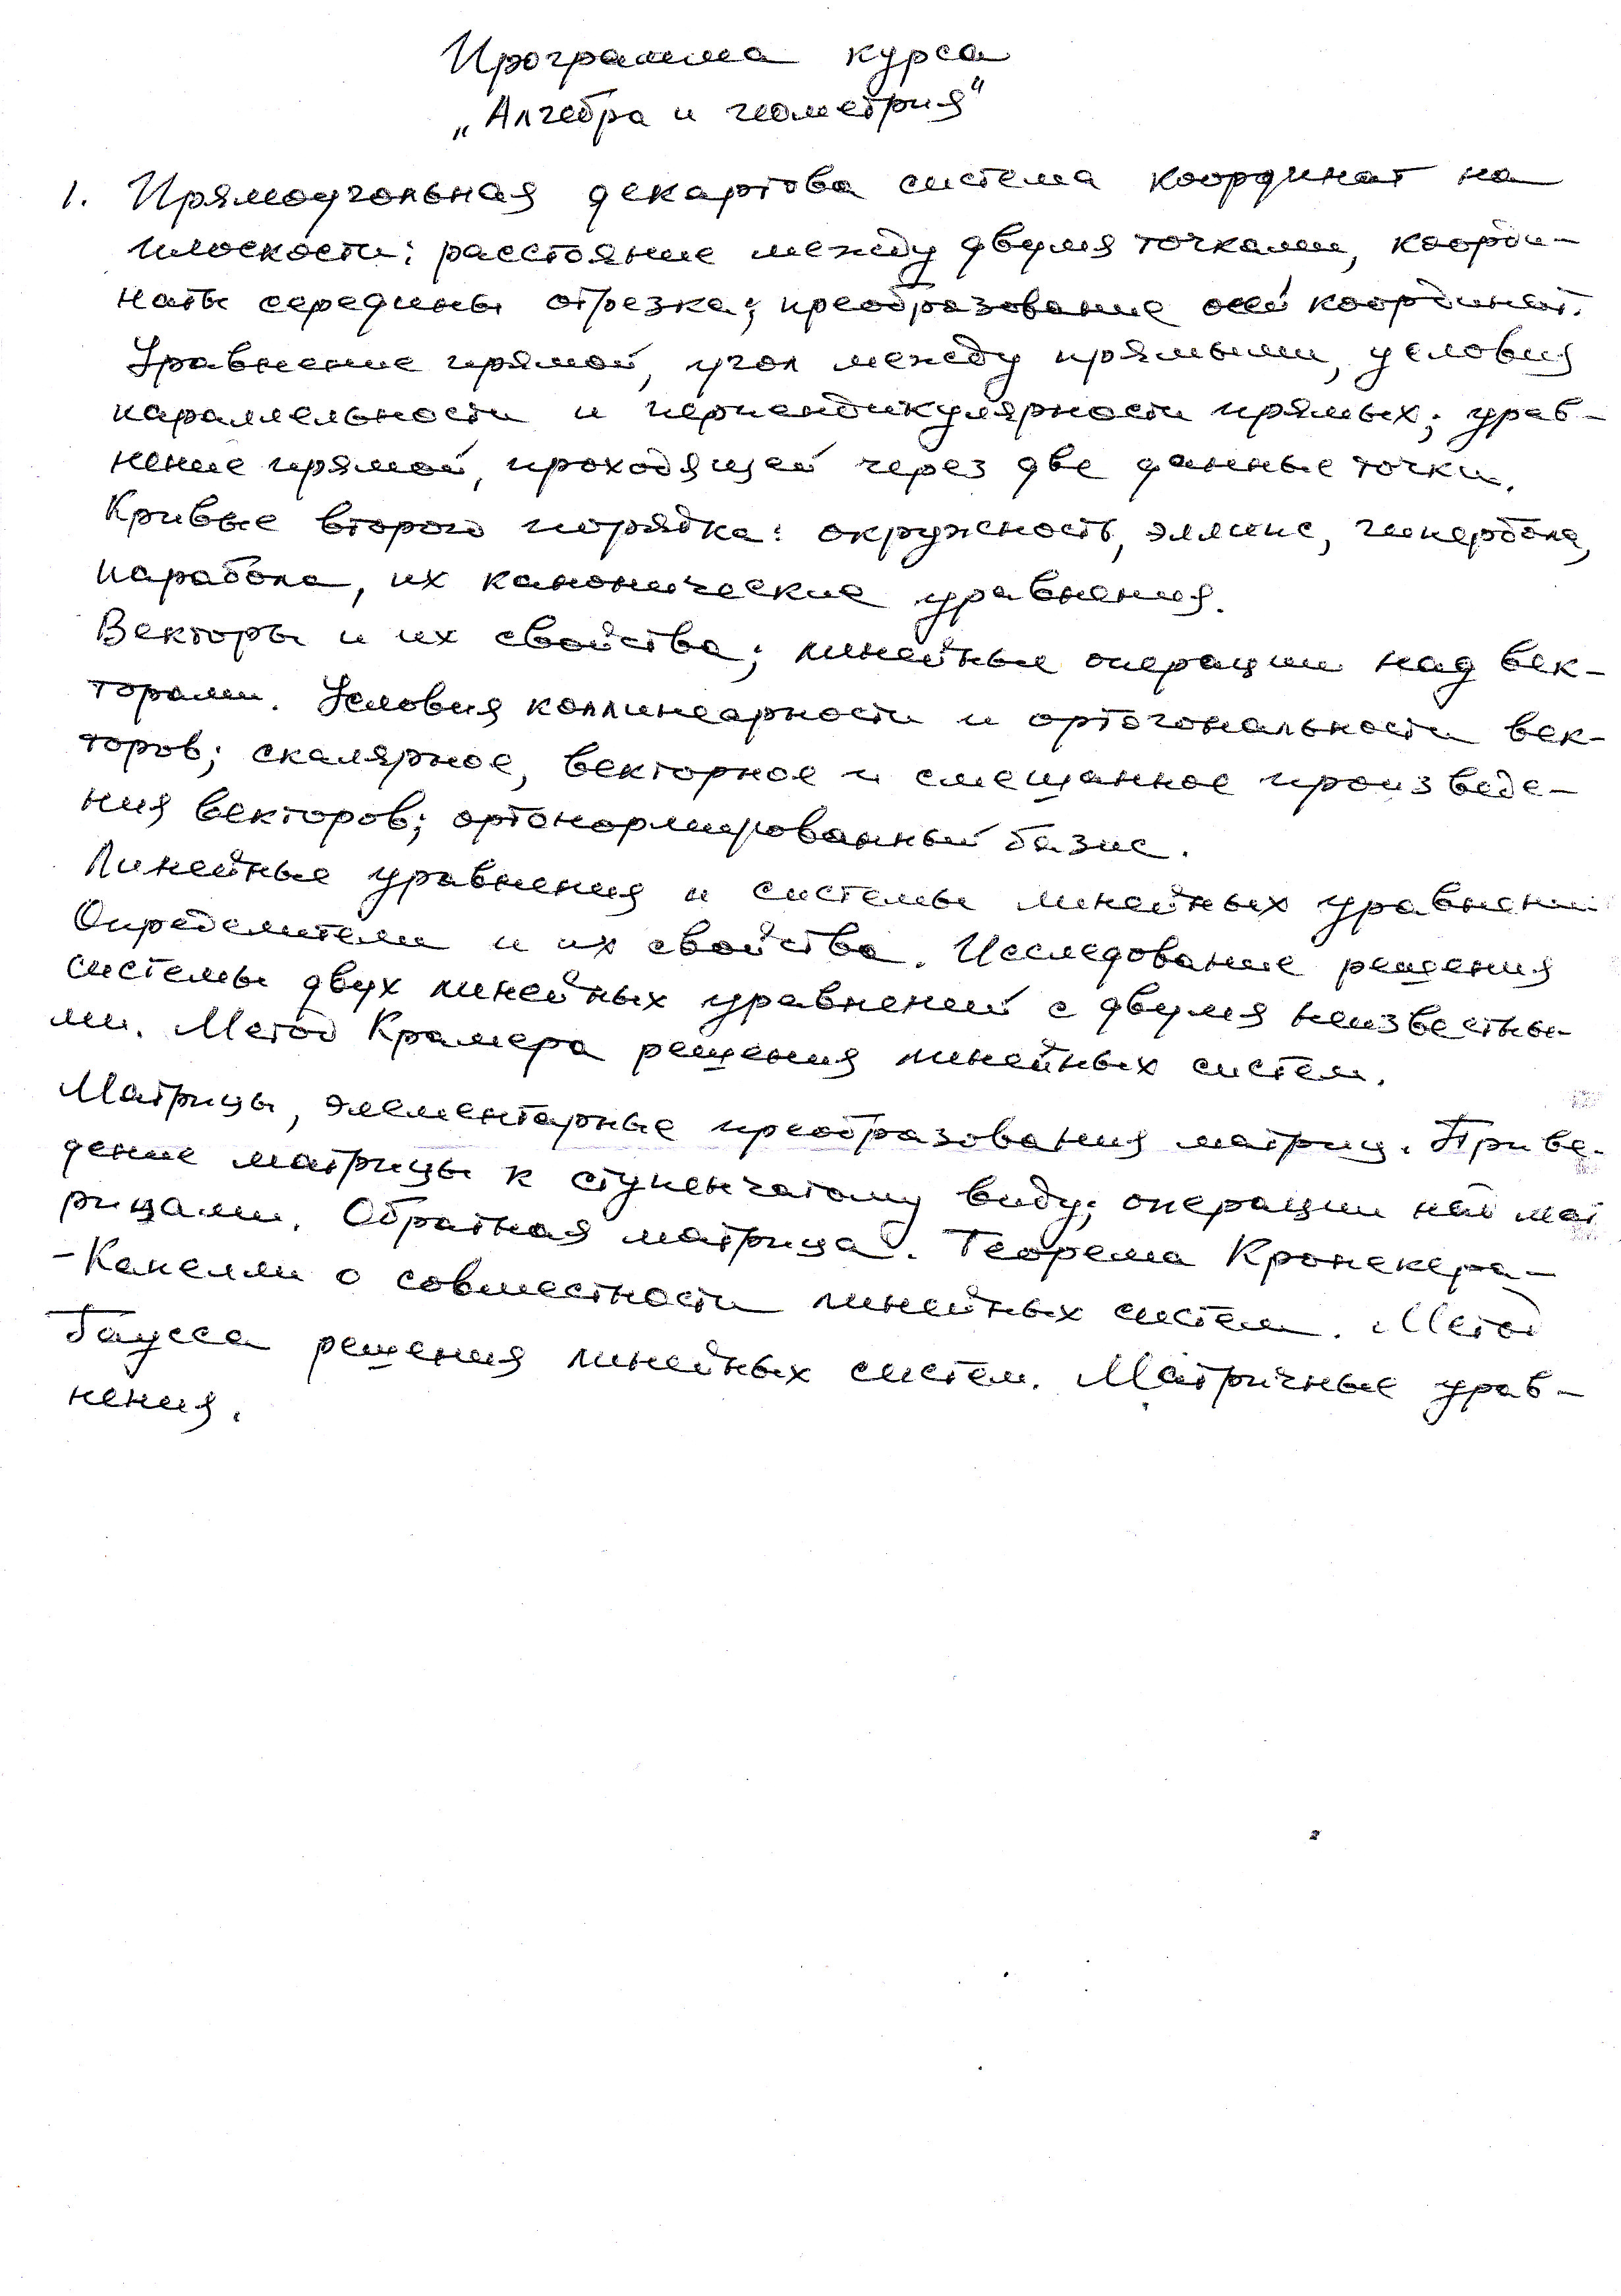 Программа курса
„Алгебра и геометрия“
1. Прямоугольная декартова система координат на
плоскости: расстояние между двумя точками, коорди-
наты середины отрезка; преобразование осей координат.
Уравнение прямой, угол между прямыми, условия
параллельности и перпендикулярности прямых; урав-
нение прямой, проходящей через две данные точки.
Кривые второго порядка: окружность, эллипс, гипербола,
парабола, их канонические уравнения.
Векторы и их свойства; линейные операции над век-
торами. Условия коллинеарности и ортогональности век-
торов; скалярное, векторное и смешанное произведе-
ния векторов; ортонормированный базис.
Линейные уравнения и системы линейных уравнений
Определители и их свойства. Исследование решения
системы двух линейных уравнений с двумя неизвестны-
ми. Метод Крамера решения линейных систем.
Матрицы, элементарные преобразования матриц. Приве-
дение матрицы к ступенчатому виду; операции над мат
рицами. Обратная матрица. Теорема Кронекера-
-Капелли о совместности линейных систем. Метод
Гаусса решения линейных систем. Матричные урав-
нения.